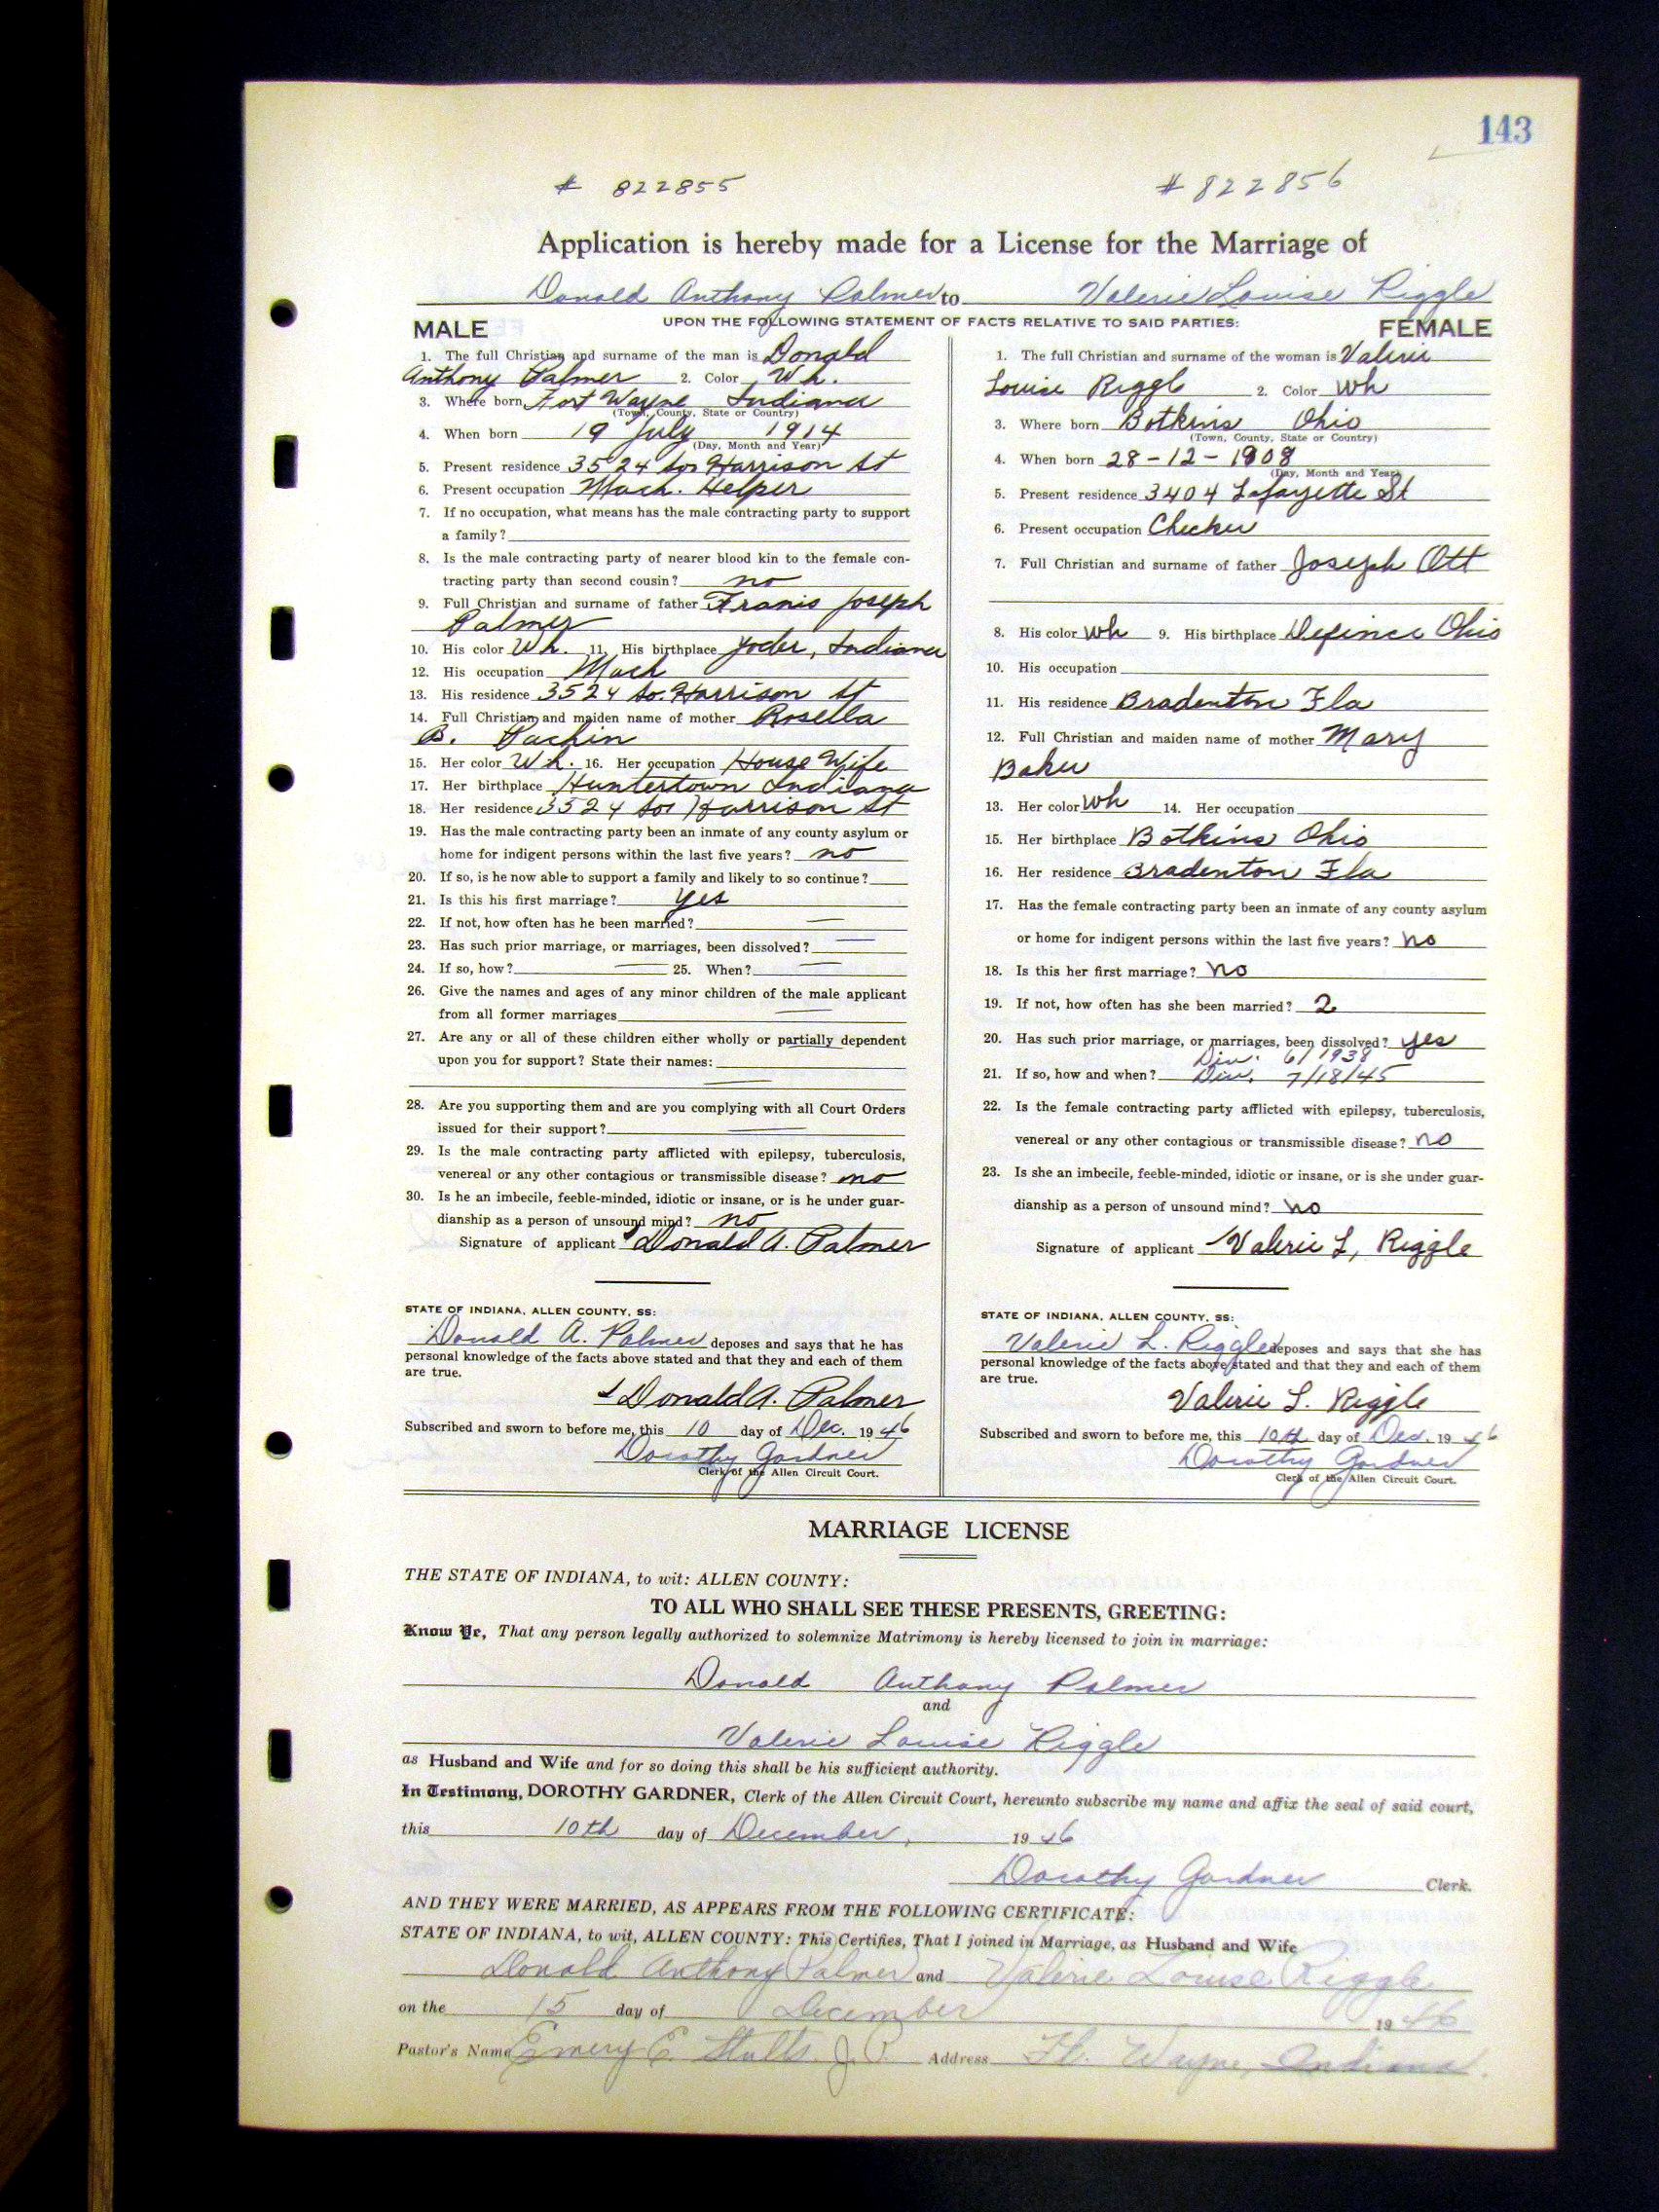 143
# 822855 # 822856
Application is hereby made for a License for the Marriage of
Donald Anthony Palmer to Valerie Louise Riggle
UPON THE FOLLOWING STATEMENT OF FACTS RELATIVE TO SAID PARTIES:
MALE
1. The full Christian and surname of the man is Donald
Anthony Palmer 2. Color Wh.
3. Where born Fort Wayne Indiana
(Town, County, State or Country)
4. When born 19 July 1914
(Day, Month and Year)
5. Present residence 3524 So. Harrison St
6. Present occupation Mach. Helper
7. If no occupation, what means has the male contracting party to support
a family?
8. Is the male contracting party of nearer blood kin to the female con-
tracting party than second cousin? no
9. Full Christian and surname of father Franis Joseph
Palmer
10. His color Wh. 11. His birthplace Yoder, Indiana
12. His occupation Mach
13. His residence 3524 So. Harrison St
14. Full Christian and maiden name of mother Rosella
B. Pachin
15. Her color Wh. 16. Her occupation House Wife
17. Her birthplace Huntertown Indiana
18. Her residence 3524 So. Harrison St
19. Has the male contracting party been an inmate of any county asylum or
home for indigent persons within the last five years? no
20. If so, is he now able to support a family and likely to so continue?
21. Is this his first marriage? yes
22. If not, how often has he been married? —
23. Has such prior marriage, or marriages, been dissolved? —
24. If so, how? — 25. When? —
26. Give the names and ages of any minor children of the male applicant
from all former marriages —
27. Are any or all of these children either wholly or partially dependent
upon you for support? State their names:
—
28. Are you supporting them and are you complying with all Court Orders
issued for their support? —
29. Is the male contracting party afflicted with epilepsy, tuberculosis,
venereal or any other contagious or transmissible disease? no
30. Is he an imbecile, feeble-minded, idiotic or insane, or is he under guar-
dianship as a person of unsound mind? no
Signature of applicant Donald A. Palmer
STATE OF INDIANA, ALLEN COUNTY, SS:
Donald A. Palmer deposes and says that he has
personal knowledge of the facts above stated and that they and each of them
are true.
Donald A. Palmer
Subscribed and sworn to before me, this 10 day of Dec. 1946
Dorothy Gardner
Clerk of the Allen Circuit Court.
FEMALE
1. The full Christian and surname of the woman is Valerie
Louise Riggle 2. Color Wh
3. Where born Botkins Ohio
(Town, County, State or Country)
4. When born 28-12-1908
(Day, Month and Year)
5. Present residence 3404 Lafayette St
6. Present occupation Checker
7. Full Christian and surname of father Joseph Ott
8. His color Wh 9. His birthplace Defince Ohio
10. His occupation
11. His residence Bradenton Fla
12. Full Christian and maiden name of mother Mary
Baker
13. Her color Wh 14. Her occupation
15. Her birthplace Botkins Ohio
16. Her residence Bradenton Fla
17. Has the female contracting party been an inmate of any county asylum
or home for indigent persons within the last five years? no
18. Is this her first marriage? no
19. If not, how often has she been married? 2
20. Has such prior marriage, or marriages, been dissolved? yes
Div. 6/1938
21. If so, how and when? Div. 7/18/45
22. Is the female contracting party afflicted with epilepsy, tuberculosis,
venereal or any other contagious or transmissible disease? no
23. Is she an imbecile, feeble-minded, idiotic or insane, or is she under guar-
dianship as a person of unsound mind? no
Signature of applicant Valerie L. Riggle
STATE OF INDIANA, ALLEN COUNTY, SS:
Valerie L. Riggle deposes and says that she has
personal knowledge of the facts above stated and that they and each of them
are true.
Valerie L. Riggle
Subscribed and sworn to before me, this 10th day of Dec. 1946
Dorothy Gardner
Clerk of the Allen Circuit Court.
MARRIAGE LICENSE
THE STATE OF INDIANA, to wit: ALLEN COUNTY:
TO ALL WHO SHALL SEE THESE PRESENTS, GREETING:
Know Ye, That any person legally authorized to solemnize Matrimony is hereby licensed to join in marriage:
Donald Anthony Palmer
and
Valerie Louise Riggle
as Husband and Wife and for so doing this shall be his sufficient authority.
In Testimony, DOROTHY GARDNER, Clerk of the Allen Circuit Court, hereunto subscribe my name and affix the seal of said court,
this 10th day of December, 1946
Dorothy Gardner Clerk.
AND THEY WERE MARRIED, AS APPEARS FROM THE FOLLOWING CERTIFICATE:
STATE OF INDIANA, to wit, ALLEN COUNTY: This Certifies, That I joined in Marriage, as Husband and Wife
Donald Anthony Palmer and Valerie Louise Riggle
on the 15 day of December 1946
Pastor's Name Emery E. Stults. J.P. Address Ft. Wayne, Indiana.